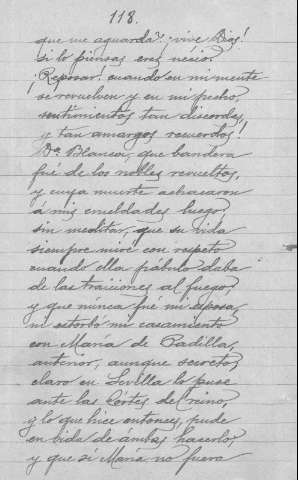 118.
que me aguarda? ¡vive Dios!
si lo piensas eres nécio.
¡Reposar! cuando en mi mente
se revuelven y en mi pecho,
sentimientos tan discordes,
y tan amargos recuerdos!
Dª Blanca, que bandera
fué de los nobles revueltos,
y cuya muerte achacaron
á mis crueldades luego,
sin meditar, que su vida
siempre miré con respeto
cuando ella pábulo daba
de las traiciones al fuego,
y que núnca fué mi esposa,
ni estorbó mi casamiento
con María de Padilla,
anterior, aunque secreto,
claro en Sevilla lo puse
ante las Córtes del reino,
y lo que hice entonces, pude
en bida de ámbas hacerlo,
y que si María no fuera